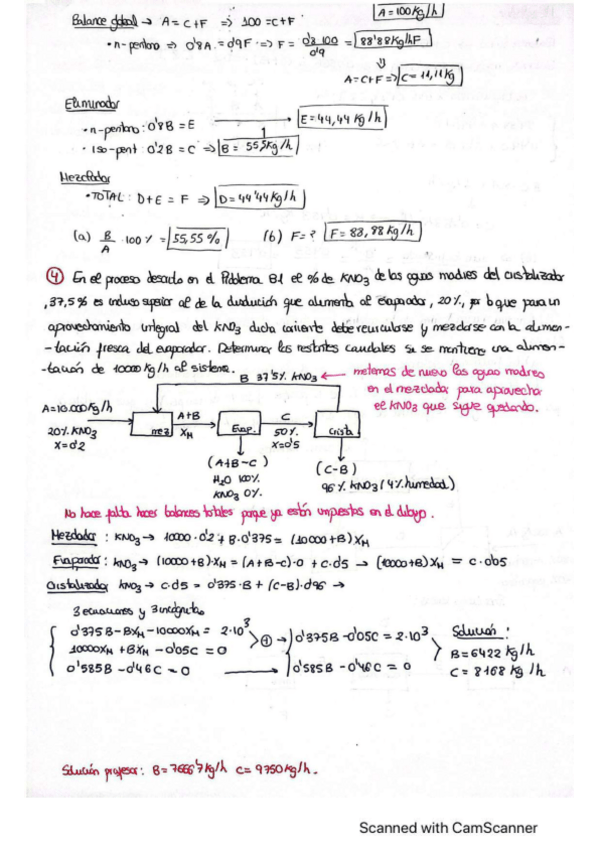 Balance global → A = C+F ⇒ 100 = C+F.
A = 100 Kg/h
• n-pentano ⇒ 0'8A = 0'9F ⇒ F = 0'8·100 / 0'9 = 88'88 Kg/h F
⇓
A = C+F ⇒ C = 11,11 Kg
Eliminador
• n-pentano: 0'8B = E → E = 44,44 Kg/h
• Iso-pent: 0'2B = C ⇒ B = 55,5 Kg/h
1
Mezclador
• TOTAL: D+E = F ⇒ D = 44'44 Kg/h
(a) B/A · 100% = 55,55 % (b) F = ? F = 88,88 Kg/h
④ En el proceso descrito en el Problema B1 el % de KNO3 de las aguas madres del cristalizador
, 37,5% es incluso superior al de la disolución que alimenta al evaporador, 20%, por lo que para un
aprovechamiento integral del KNO3 dicha corriente debe recircularse y mezclarse con la alimen-
-tación fresca del evaporador. Determinar los restantes caudales si se mantiene una alimen-
-tación de 10000 Kg/h al sistema.
B 37'5% KNO3 ← metemos de nuevo las aguas madres
en el mezclador para aprovechar
el KNO3 que sigue quedando.
A = 10.000 Kg/h
20% KNO3
X = 0'2
mez
A+B
XM
Evap.
C
50%
X = 0'5
Crista
(A+B-C)
H2O 100%
KNO3 0%
(C-B)
96% KNO3 (4% humedad)
No hace falta hacer balances totales porque ya están impuestos en el dibujo.
Mezclador: KNO3 → 10000·0'2 + B·0'375 = (10000+B) XM
Evaporador: KNO3 → (10000+B)·XM = (A+B-C)·0 + C·0'5 → (10000+B) XM = C·0'5
Cristalizador KNO3 → C·0'5 = 0'375·B + (C-B)·0'96 →
3 ecuaciones y 3 incógnitas
0'375B - BXM - 10000XM = 2·10³
10000XM + BXM - 0'05C = 0
0'585B - 0'46C = 0
① → 0'375B - 0'05C = 2·10³
0'585B - 0'46C = 0
Solución:
B = 6422 Kg/h
C = 8168 Kg/h
Solución profesor: B = 7666'7 Kg/h C = 9750 Kg/h.
Scanned with CamScanner